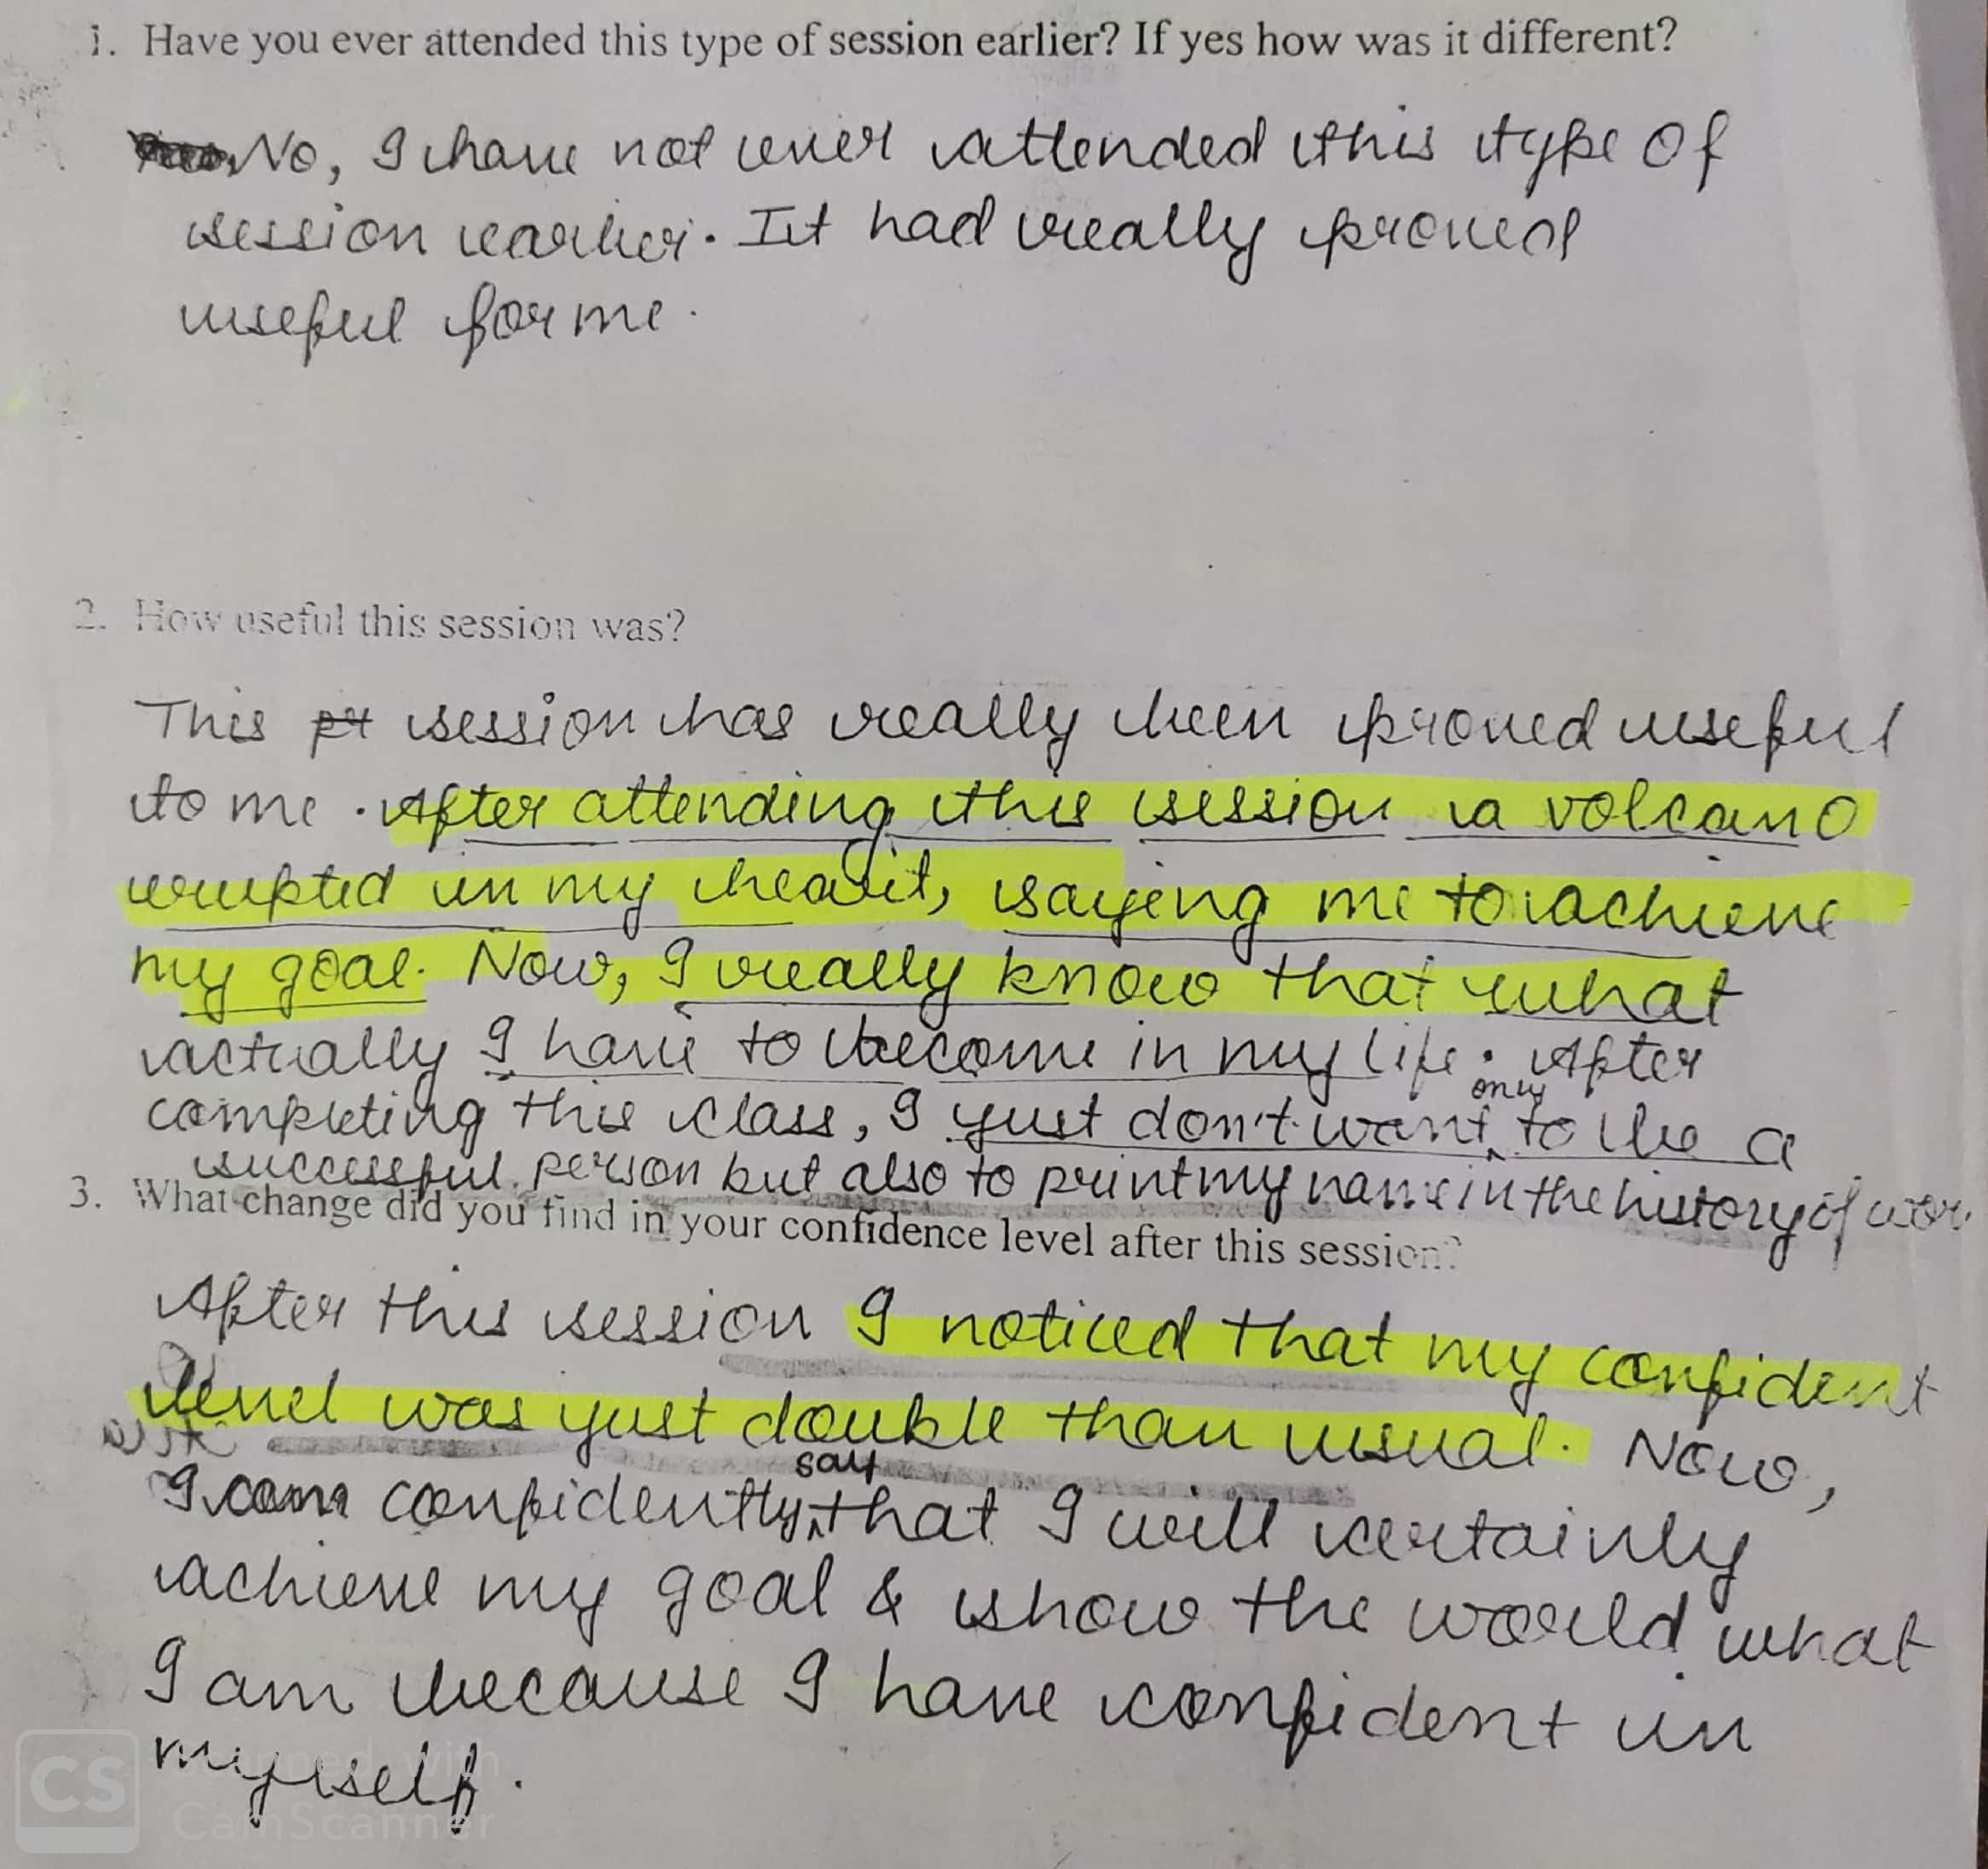 1. Have you ever attended this type of session earlier? If yes how was it different?
No, I have not ever attended this type of
session earlier. It had really proved
useful for me.
2. How useful this session was?
This session has really been proved useful
to me. After attending this session a volcano
erupted in my heart, saying me to achieve
my goal. Now, I really know that what
actually I have to become in my life. After
completing this class, I just don't want only to be a
successful person but also to print my name in the history of
3. What change did you find in your confidence level after this session?
After this session I noticed that my confident
level was just double than usual. Now,
I can confidently say that I will certainly
achieve my goal & show the world what
I am because I have confident in
myself.
CS
Scanned with
CamScanner